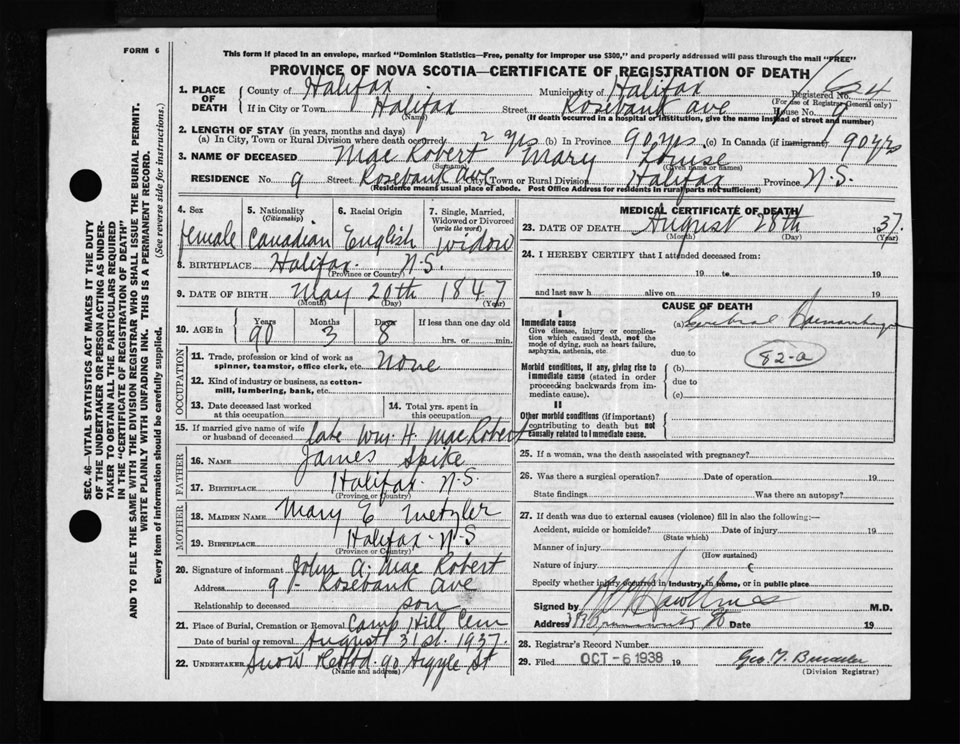 FORM 6
This form if placed in an envelope, marked "Dominion Statistics—Free, penalty for improper use $300," and properly addressed will pass through the mail "FREE"
PROVINCE OF NOVA SCOTIA—CERTIFICATE OF REGISTRATION OF DEATH
1. PLACE OF DEATH
County of Halifax Municipality of Halifax Registered No.
(For use of Registrar General only)
If in City or Town Halifax Street Rosebank Ave House No. 9
(Name) (If death occurred in a hospital or institution, give the name instead of street and number)
2. LENGTH OF STAY (in years, months and days)
(a) In City, Town or Rural Division where death occurred 2 yrs (b) In Province 90 yrs (c) In Canada (if immigrant) 90 yrs
3. NAME OF DECEASED Mac Robert Mary Louise
(Surname) (Given name or names)
RESIDENCE No. 9 Street Rosebank Ave City, Town or Rural Division Halifax Province N.S.
(Residence means usual place of abode. Post Office Address for residents in rural parts not sufficient)
4. Sex female
5. Nationality (Citizenship) Canadian
6. Racial Origin English
7. Single, Married, Widowed or Divorced (write the word) widow
8. BIRTHPLACE Halifax. N.S.
(Province or Country)
9. DATE OF BIRTH May 20th 1847
(Month) (Day) (Year)
10. AGE in Years 90 Months 3 Days 8 If less than one day old
hrs. or min.
OCCUPATION
11. Trade, profession or kind of work as spinner, teamster, office clerk, etc. None
12. Kind of industry or business, as cotton-mill, lumbering, bank, etc.
13. Date deceased last worked at this occupation
14. Total yrs. spent in this occupation
15. If married give name of wife or husband of deceased late Wm. H. MacRobert
FATHER
16. NAME James Spike
17. BIRTHPLACE Halifax. N.S.
(Province or Country)
MOTHER
18. MAIDEN NAME Mary E Metzler
19. BIRTHPLACE Halifax. N.S
(Province or Country)
20. Signature of informant John A. Mac Robert
Address 9 - Rosebank Ave
Relationship to deceased son
21. Place of Burial, Cremation or Removal Camp Hill Cem
Date of burial or removal August 31st. 1937.
22. UNDERTAKER Snow 90 Argyle St
(Name and address)
MEDICAL CERTIFICATE OF DEATH
23. DATE OF DEATH August 28th 1937.
(Month) (Day) (Year)
24. I HEREBY CERTIFY that I attended deceased from:
19 to 19
and last saw h alive on 19
CAUSE OF DEATH
I
Immediate cause
Give disease, injury or complication which caused death, not the mode of dying, such as heart failure, asphyxia, asthenia, etc.
(a) Cerebral Haemorrhage
due to
82-a
Morbid conditions, if any, giving rise to immediate cause (stated in order proceeding backwards from immediate cause).
(b)
due to
(c)
II
Other morbid conditions (if important) contributing to death but not causally related to immediate cause.
25. If a woman, was the death associated with pregnancy?
26. Was there a surgical operation? Date of operation 19
State findings Was there an autopsy?
27. If death was due to external causes (violence) fill in also the following:—
Accident, suicide or homicide? Date of injury 19
(State which)
Manner of injury
(How sustained)
Nature of injury
Specify whether injury occurred in industry, in home, or in public place
Signed by M.D.
Address Date 19
28. Registrar's Record Number
29. Filed OCT -6 1938 19
(Division Registrar)
SEC. 46—VITAL STATISTICS ACT MAKES IT THE DUTY
OF THE UNDERTAKER OR PERSON ACTING AS UNDER-
TAKER TO OBTAIN ALL THE PARTICULARS REQUIRED
IN THE "CERTIFICATE OF REGISTRATION OF DEATH"
AND TO FILE THE SAME WITH THE DIVISION REGISTRAR WHO SHALL ISSUE THE BURIAL PERMIT.
WRITE PLAINLY WITH UNFADING INK. THIS IS A PERMANENT RECORD.
Every item of information should be carefully supplied. (See reverse side for instructions.)